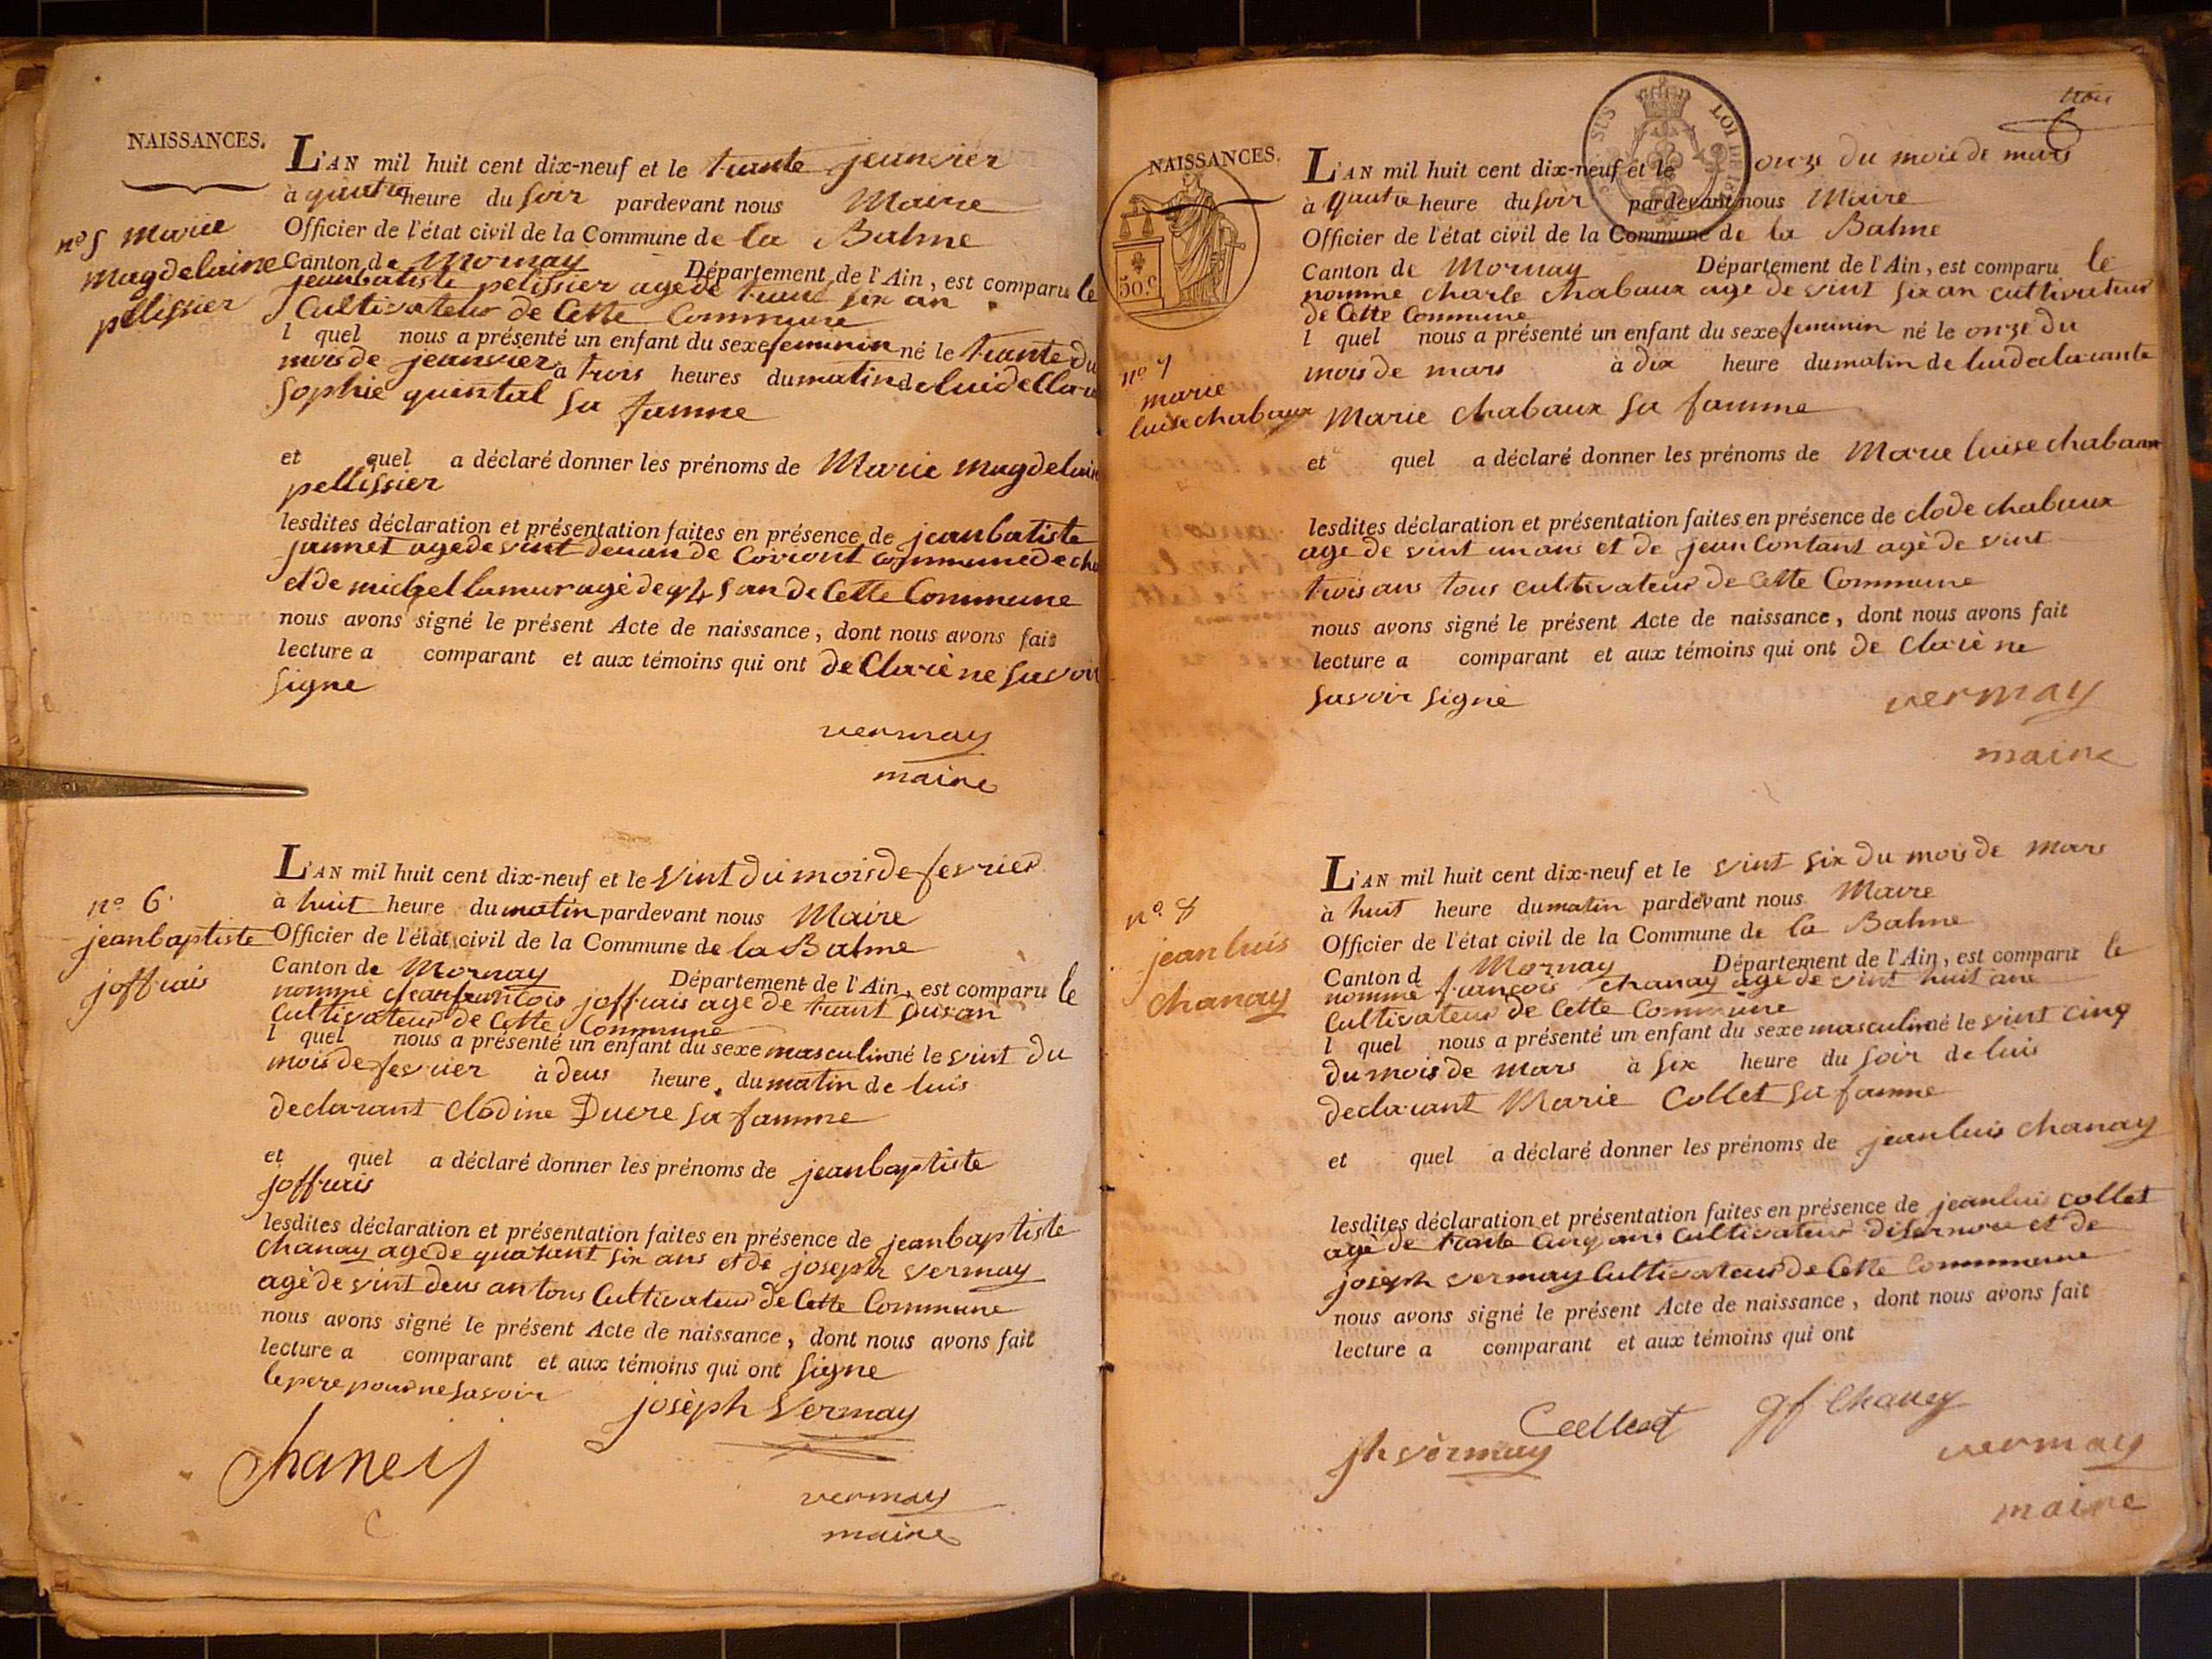 NAISSANCES.
L'AN mil huit cent dix-neuf et le trante jeanvier
à quatre heure du soir pardevant nous Maire
Officier de l'état civil de la Commune de la Balme
Canton de Mornay Département de l'Ain, est comparu le
jeanbatiste pelissier age de trante six an
Cultivateur de Cette Commune
l quel nous a présenté un enfant du sexe feminin né le trante du
mois de jeanvier a trois heures du matin de lui de Clara
Sophie quental sa famme
et quel a déclaré donner les prénoms de Marie Magdelaine
pellissier
lesdites déclaration et présentation faites en présence de jeanbatiste
jannet age de vint deuan de Coriont commune de
et de michel lamur agè de 45 an de Cette Commune
nous avons signé le présent Acte de naissance, dont nous avons fait
lecture a comparant et aux témoins qui ont de Clarè ne savoir
signe
vermay
maire
n° 5 Marie
Magdelaine
pellissier
L'AN mil huit cent dix-neuf et le vint du mois de fevrier
à huit heure du matin pardevant nous Maire
Officier de l'état civil de la Commune de la Balme
Canton de Mornay Département de l'Ain, est comparu le
nommé jeanfrancois joffrais age de trant an
Cultivateur de Cette Commune
l quel nous a présenté un enfant du sexe masculin né le vint du
mois de fevrier à deus heure, du matin de luis
declarant Clodine Ducre sa famme
et quel a déclaré donner les prénoms de jeanbaptiste
joffrais
lesdites déclaration et présentation faites en présence de jeanbaptiste
chanay age de quarant six ans et de joseph vermay
agè de vint deus an tous Cultivateur de Cette Commune
nous avons signé le présent Acte de naissance, dont nous avons fait
lecture a comparant et aux témoins qui ont signe
le pere pour ne savoir
joseph vermay
chaney
vermay
maire
n° 6.
jeanbaptiste
joffrais
NAISSANCES.
50.c
LOI DE
L'AN mil huit cent dix-neuf et le onze du mois de mars
à quatre heure du soir pardevant nous Maire
Officier de l'état civil de la Commune de la Balme
Canton de Mornay Département de l'Ain, est comparu le
nomme charle chabaux age de vint six an cultivateur
de Cette Commune
l quel nous a présenté un enfant du sexe feminin né le onze du
mois de mars à dix heure du matin de lui declarante
Marie chabaux sa famme
et quel a déclaré donner les prénoms de Marie luise chabaux
lesdites déclaration et présentation faites en présence de clode chabaux
age de vint un ans et de jean Contant agè de vint
trois ans tous cultivateur de Cette Commune
nous avons signé le présent Acte de naissance, dont nous avons fait
lecture a comparant et aux témoins qui ont de Clarè ne
savoir signè
vermay
maire
n° 7
marie
luise chabaux
L'AN mil huit cent dix-neuf et le vint six du mois de mars
à huit heure du matin pardevant nous Maire
Officier de l'état civil de la Commune de la Balme
Canton d Mornay Département de l'Ain, est comparu le
nommé francois chanay age de vint huit ans
Cultivateur de Cette Commune
l quel nous a présenté un enfant du sexe masculin né le vint cinq
du mois de mars à six heure du soir de luis
declarant Marie Collet sa famme
et quel a déclaré donner les prénoms de jeanluis chanay
lesdites déclaration et présentation faites en présence de jeanluis collet
agè de trante cinq ans Cultivateur et de
joseph vermay Cultivateur de Cette Commune
nous avons signé le présent Acte de naissance, dont nous avons fait
lecture a comparant et aux témoins qui ont
jh vèrmay
vermay
maire
n° 8
jean luis
chanay